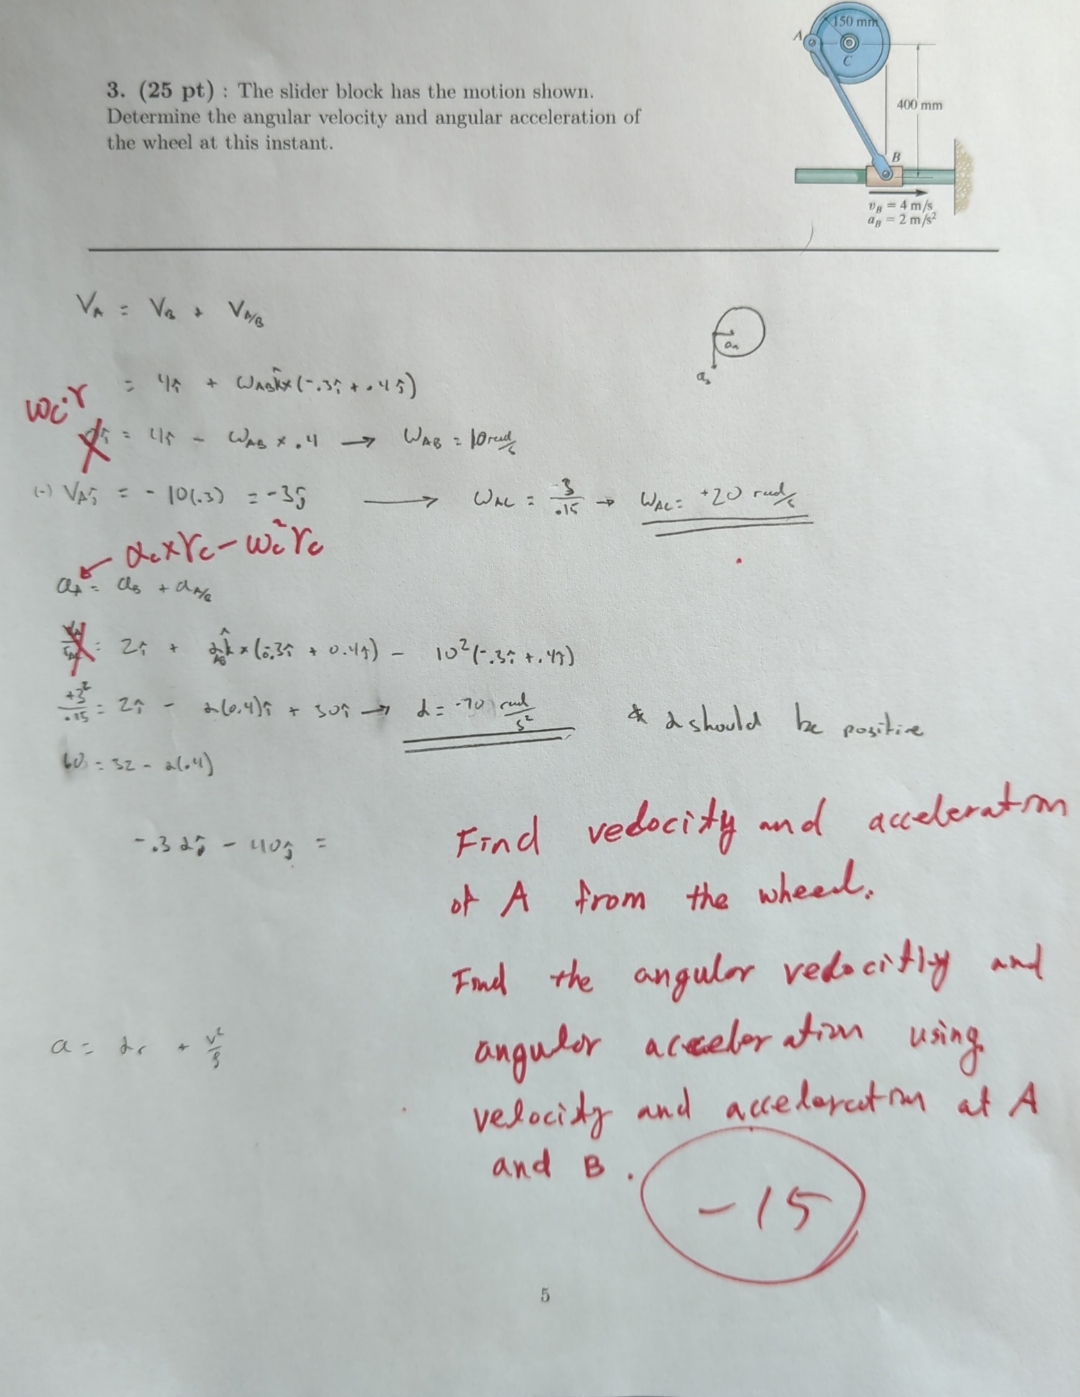 3. (25 pt) : The slider block has the motion shown.
Determine the angular velocity and angular acceleration of
the wheel at this instant.
150 mm
A
C
400 mm
B
v_B = 4 m/s
a_B = 2 m/s²
V_A = V_B + V_A/B
= 4î + ω_AB k̂ × (-.3î + .4ĵ)
ω_C·r
= 4î - ω_AB × .4 → ω_AB = 10 rad/s
(-) V_A ĵ = - 10(.3) = -3ĵ → ω_AC = 3/.15 → ω_AC = +20 rad/s
α_c × r_c - ω_c² r_c
a_A = a_B + a_A/B
= 2î + α_AB k̂ × (-0.3î + 0.4ĵ) - 10²(-.3î + .4ĵ)
+3²/.15 = 2î - α(0.4)î + 30î → α = -70 rad/s²
* α should be positive
60 = 32 - α(.4)
-.3αĵ - 40ĵ =
a = αr + v²/ρ
a_n
Find velocity and acceleration
of A from the wheel.
Find the angular velocitiy and
angular acceleration using
velocity and acceleration at A
and B.
-15
5